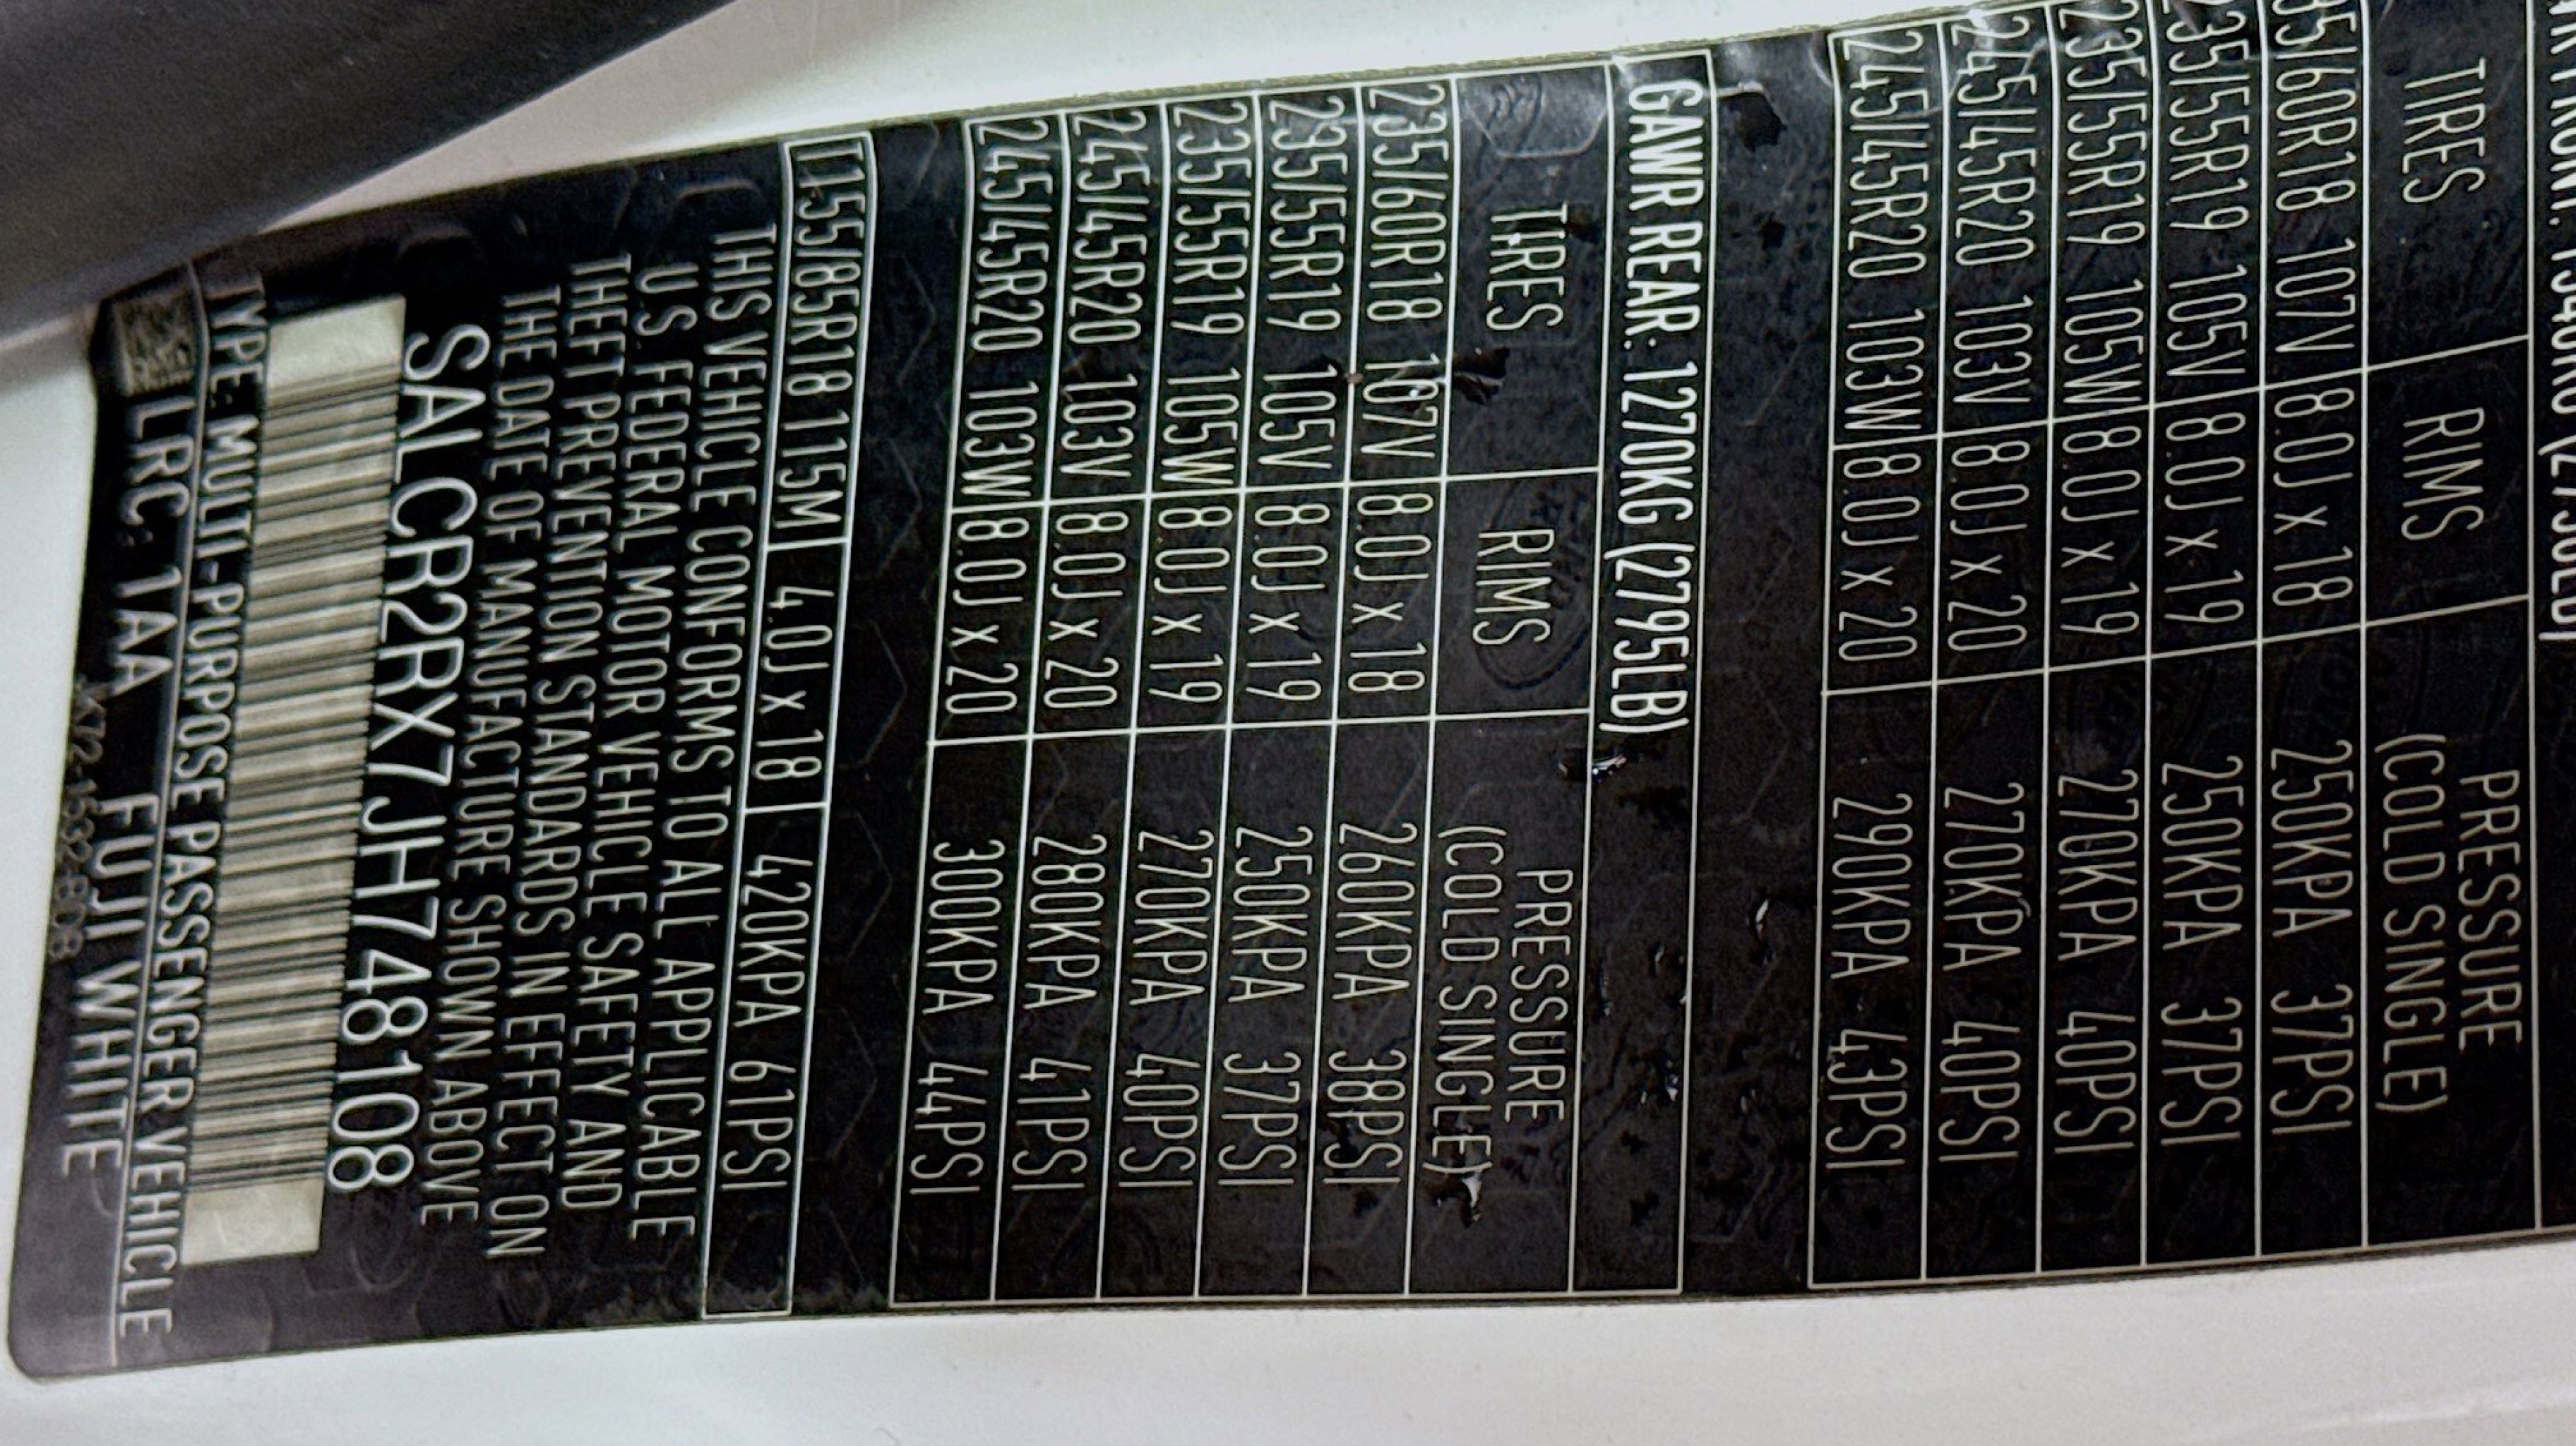 TIRES RIMS PRESSURE
(COLD SINGLE)
107V 8.0J x 18 250KPA 37PSI
235/55R19 105V 8.0J x 19 250KPA 37PSI
235/55R19 105W 8.0J x 19 270KPA 40PSI
245/45R20 103V 8.0J x 20 270KPA 40PSI
245/45R20 103W 8.0J x 20 290KPA 43PSI
GAWR REAR: 1270KG (2795LB)
TIRES RIMS PRESSURE
(COLD SINGLE)
235/60R18 107V 8.0J x 18 260KPA 38PSI
235/55R19 105V 8.0J x 19 250KPA 37PSI
235/55R19 105W 8.0J x 19 270KPA 40PSI
245/45R20 103V 8.0J x 20 280KPA 41PSI
245/45R20 103W 8.0J x 20 300KPA 44PSI
T155/85R18 115M 4.0J x 18 420KPA 61PSI
THIS VEHICLE CONFORMS TO ALL APPLICABLE
U.S. FEDERAL MOTOR VEHICLE SAFETY AND
THEFT PREVENTION STANDARDS IN EFFECT ON
THE DATE OF MANUFACTURE SHOWN ABOVE
SALCR2RX7JH748108
TYPE: MULTI-PURPOSE PASSENGER VEHICLE
LRC: 1AA FUJI WHITE